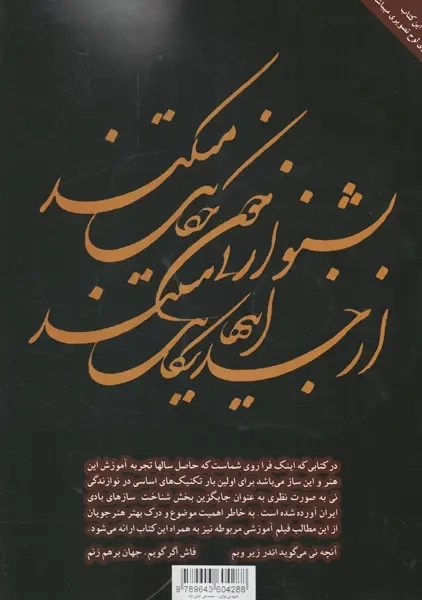 این کتاب
لوح تصویری میباشد
بشنو از نی چون حکایت میکند
از جداییها شکایت میکند
در کتابی که اینک فرا روی شماست که حاصل سالها تجربه آموزش این
هنر و این ساز می‌باشد برای اولین بار تکنیک‌های اساسی در نوازندگی
نی به صورت نظری به عنوان جایگزین بخش شناخت سازهای بادی
ایران آورده شده است. به خاطر اهمیت موضوع و درک بهتر هنرجویان
از این مطالب فیلم آموزشی مربوطه نیز به همراه این کتاب ارائه می‌شود.
آنچه نی می‌گوید اندر زیر وبم فاش اگر گویم، جهان برهم زنم
9 789643 604288